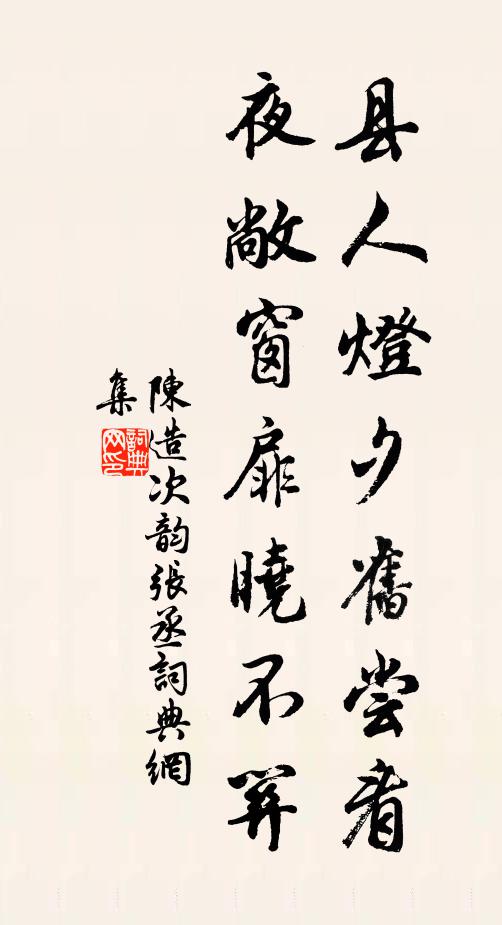 县人燈夕舊尝看
夜敞窗扉曉不關
陳造次韵張丞詞典網
集
詞典网印